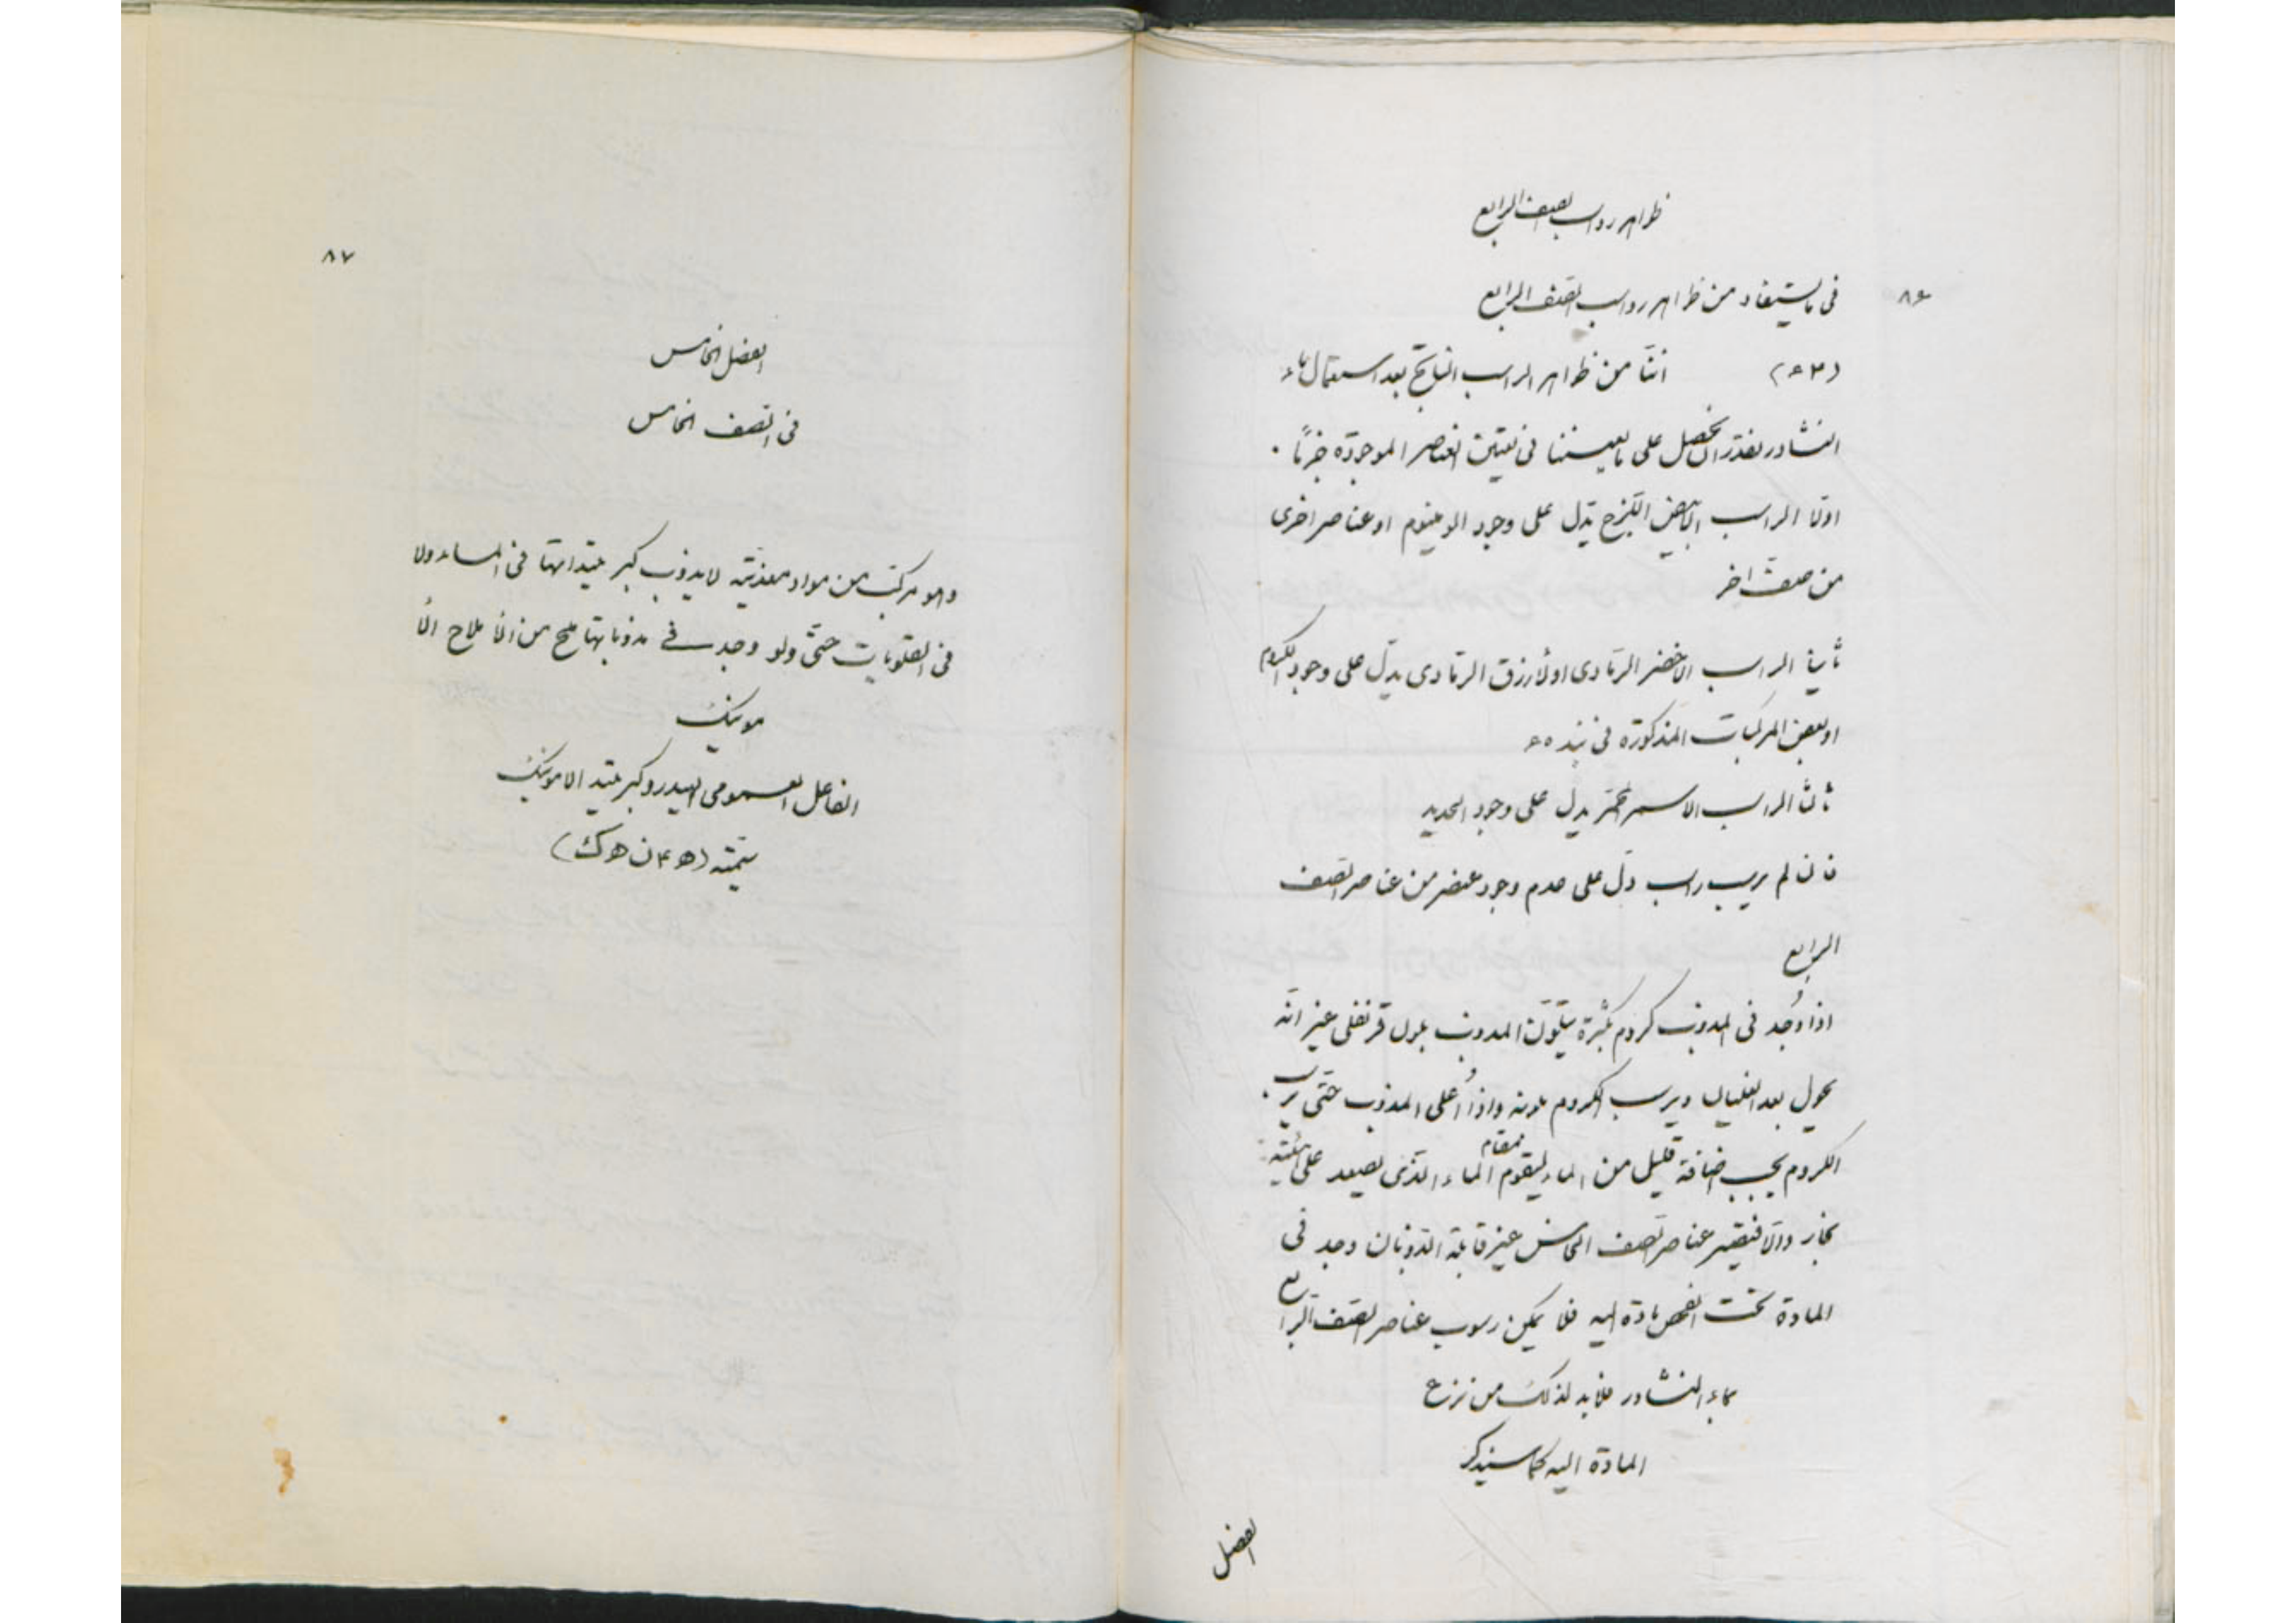 ظواهر رواسب الصنف الرابع
٨٦
فى ما يستفاد من ظواهر رواسب الصنف الرابع
(٦٣) اننا من ظواهر الراسب الناتج بعد استعمال ماء
النشادر نقدر ان نحصل على ما يعيننا فى تعيين العناصر الموجودة جزئا .
اولا الراسب الابيض اللزج يدل على وجود الومينيوم او عناصر اخرى
من صنف اخر
ثانيا الراسب الاخضر الرمادى او الازرق الرمادى يدل على وجود الكروم
او بعض المركبات المذكورة فى نبذه ٦٥
ثالثا الراسب الاسمر المحمر يدل على وجود الحديد
فان لم يرسب راسب دل على عدم وجود عنصر من عناصر الصنف
الرابع
اذا وجد فى المذوب كروم بكثرة يتلون المذوب بلون قرنفلى غير انه
يحول بعد الغليان ويرسب الكروم بلونه واذا اغلى المذوب حتى يرسب
الكروم يجب اضافة قليل من الماء ليقوم مقام الماء الذى يصعد على هيئة
بخار والا فتصير عناصر الصنف الخامس غير قابلة الذوبان وجد فى
المادة تحت الفحص مادة الية فلا يمكن رسوب عناصر الصنف الرابع
بماء النشادر فلا بد لذلك من نزع
المادة الية كما سيذكر
الفصل
٨٧
الفصل الخامس
فى الصنف الخامس
وهو مركب من مواد معدنية لا يذوب كبريتيداتها فى الماء ولا
فى القلويات حتى ولو وجد فى مذوباتها ملح من الاملاح الا
مونيك
الفاعل العمومى الهيدروكبريتيد الامونيك
سمته (ه ۴ ن ه ك)